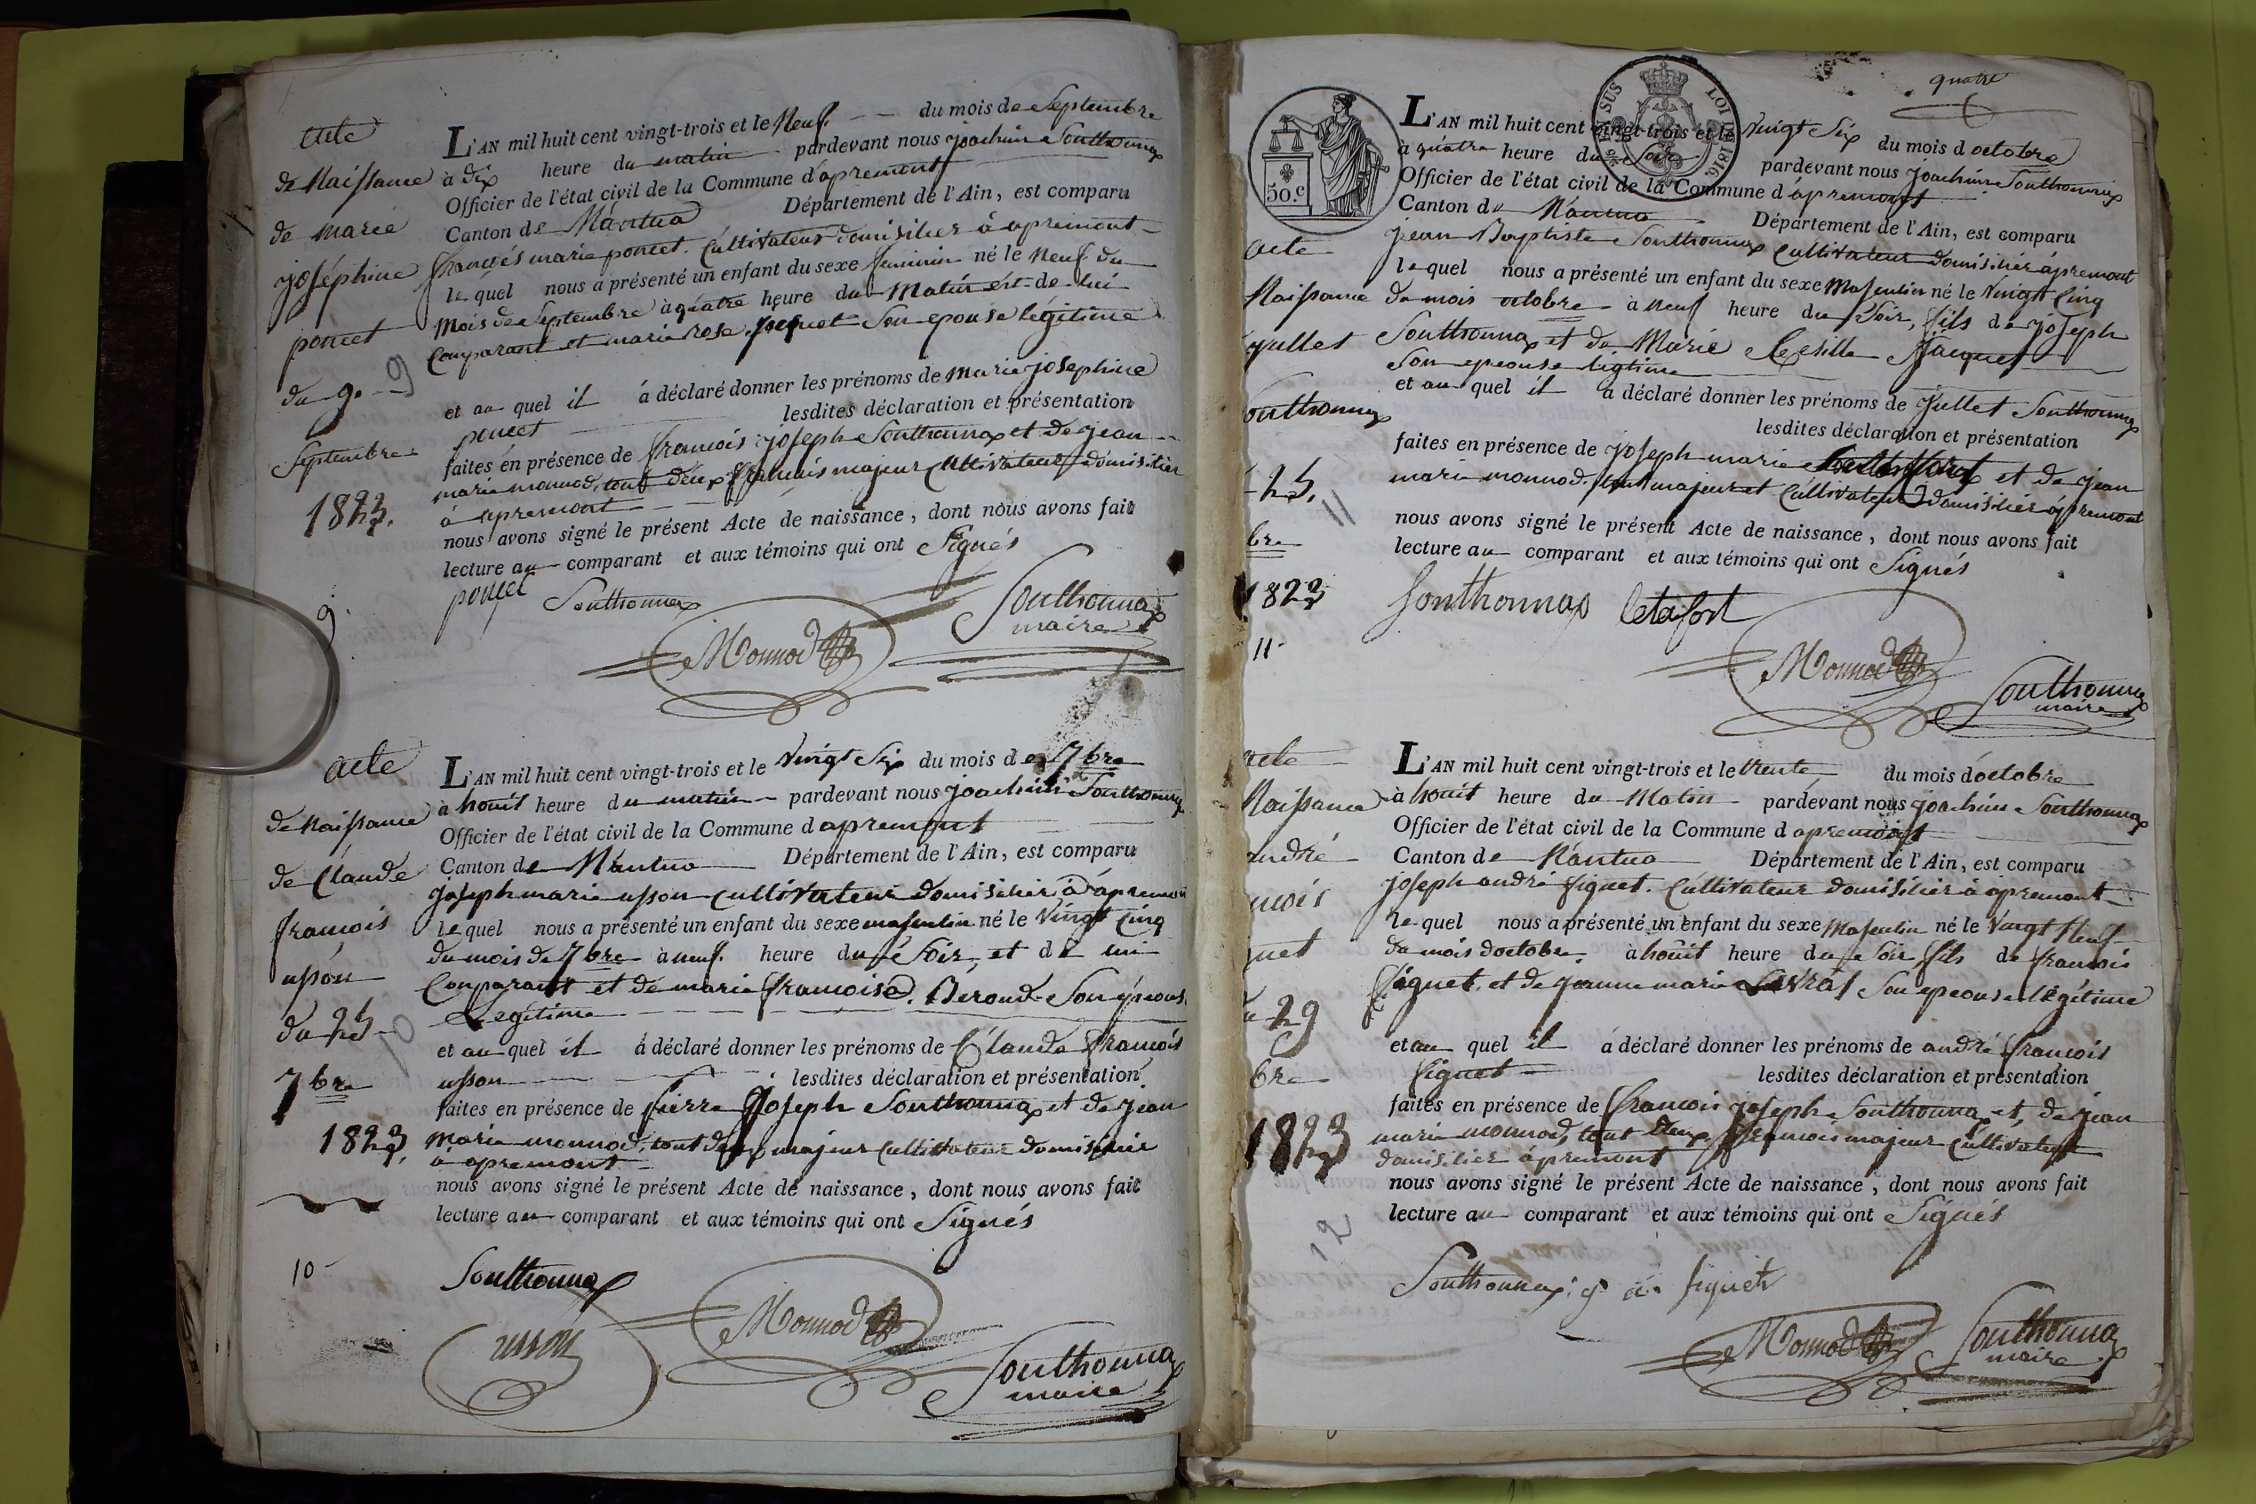 acte
de Naissance
de marie
joséphine
poncet
du 9. 9
Septembre
1823.
9.
L'AN mil huit cent vingt-trois et le Neuf du mois de Septembre
à dix heure du matin pardevant nous joachim Sonthonnax
Officier de l'état civil de la Commune d'apremont
Canton de Nantua Département de l'Ain, est comparu
francois marie poncet. Cultivateur domisilier à apremont
le quel nous a présenté un enfant du sexe feminin né le Neuf du
mois de Septembre à quatre heure du Matin et de lui
Comparant et marie rose son epouse légitime
et au quel il à déclaré donner les prénoms de marie josephine
poncet lesdites déclaration et présentation
faites en présence de francois joseph Sonthonnax et de jean
marie monnod, tout deux francais majeur Cultivateur domisilier
à apremont
nous avons signé le présent Acte de naissance, dont nous avons fait
lecture au comparant et aux témoins qui ont Signés
poncet Sonthonnax
Monnod
Sonthonnax
maire
acte
de Naissance
de Claude
francois
usson
du 25
10
7bre
1823.
10
L'AN mil huit cent vingt-trois et le Vingt Six du mois de 7bre
à houit heure du matin pardevant nous joachim Sonthonnax
Officier de l'état civil de la Commune d apremont
Canton de Nantua Département de l'Ain, est comparu
joseph marie usson cultivateur domisilier à apremont
le quel nous a présenté un enfant du sexe masculin né le Vingt Cinq
du mois de 7bre à neuf heure du Soir, et de lui
Comparant et de marie francoise Beroud Son épouse
Legitime
et au quel il à déclaré donner les prénoms de Claude francois
usson lesdites déclaration et présentation
faites en présence de pierre joseph Sonthonnax et de jean
marie monnod, tout deux majeur Cultivateur domisilier
à apremont
nous avons signé le présent Acte de naissance, dont nous avons fait
lecture au comparant et aux témoins qui ont Signés
Sonthonnax
usson
Monnod
Sonthonnax
maire
quatre
50.c
SUS LOI 1816.
acte
Naissance
jullet
onthonnax
25.
11
bre
1823
11
L'AN mil huit cent vingt-trois et le Vingt Six du mois d octobre
à quatre heure du Soir pardevant nous joachim Sonthonnax
Officier de l'état civil de la Commune d'apremont
Canton de Nantua Département de l'Ain, est comparu
jean Baptiste Sonthonnax Cultivateur domisilier àpremont
le quel nous a présenté un enfant du sexe Masculin né le Vingt Cinq
du mois octobre à neuf heure du Soir, fils de joseph
Sonthonnax et de Marie Cesille Jacquet
Son epeouse légtime
et au quel il à déclaré donner les prénoms de jullet Sonthonnax
lesdites déclaration et présentation
faites en présence de joseph marie et de jean
marie monnod. tout majeur et Cultivateur domisilier àpremont
nous avons signé le présent Acte de naissance, dont nous avons fait
lecture au comparant et aux témoins qui ont Signés
Sonthonnax Letafort
Monnod
Sonthonnax
maire
acte
Naissance
andré
ncois
uet
29
bre
1823
12
L'AN mil huit cent vingt-trois et le trente du mois d'octobre
à houit heure du Matin pardevant nous joachim Sonthonnax
Officier de l'état civil de la Commune d apremont
Canton de Nantua Département de l'Ain, est comparu
joseph andré figuet. Cultivateur domisilier à apremont
le quel nous a présenté un enfant du sexe Masculin né le Vingt Neuf
du mois doctobre. à houit heure du Soir fils de francois
figuet. et de jeanne marie Son epeouse légitime
et au quel il à déclaré donner les prénoms de andré francois
figuet lesdites déclaration et présentation
faites en présence de francois joseph Sonthonnax et, de jean
marie monnod, tout deux francois majeur Cultivateur
domisilier àpremont
nous avons signé le présent Acte de naissance, dont nous avons fait
lecture au comparant et aux témoins qui ont Signés
Sonthonnax. j a. figuet
Monnod
Sonthonnax
maire